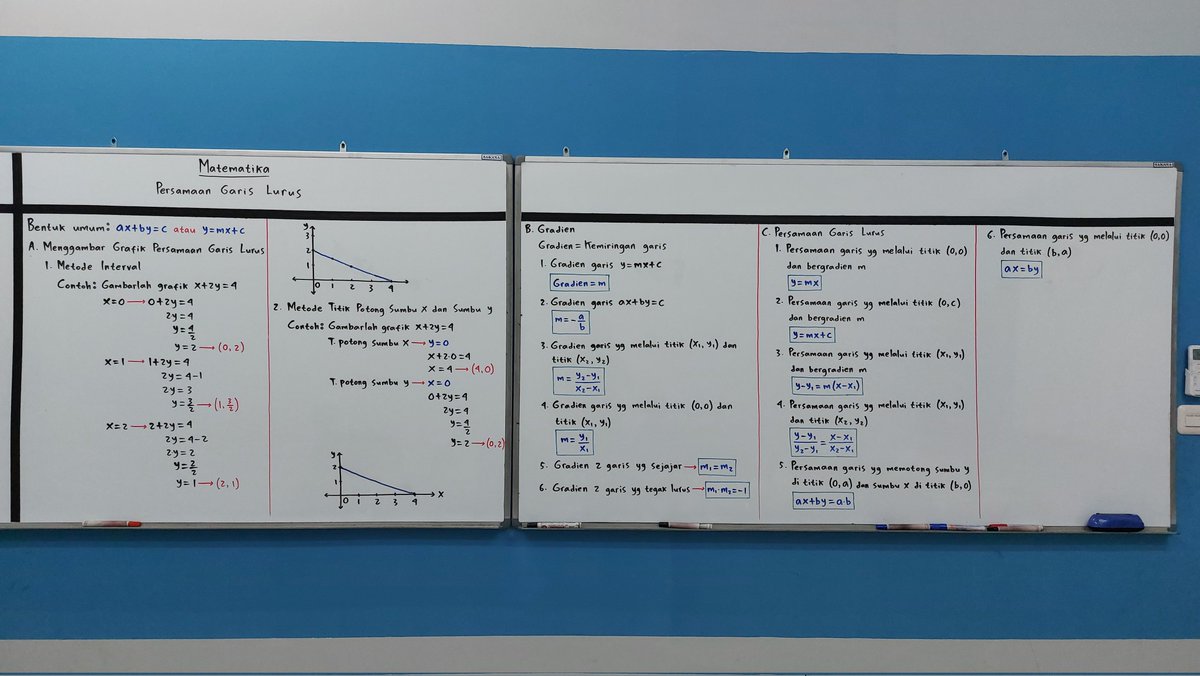 Matematika
Persamaan Garis Lurus
Bentuk umum: ax+by=c atau y=mx+c
A. Menggambar Grafik Persamaan Garis Lurus
1. Metode Interval
Contoh: Gambarlah grafik x+2y=4
x=0 → 0+2y=4
2y=4
y=4/2
y=2 → (0,2)
x=1 → 1+2y=4
2y=4-1
2y=3
y=3/2 → (1, 3/2)
x=2 → 2+2y=4
2y=4-2
2y=2
y=2/2
y=1 → (2,1)
y
3
2
1
0 1 2 3 4
2. Metode Titik Potong Sumbu x dan Sumbu y
Contoh: Gambarlah grafik x+2y=4
T. potong sumbu x → y=0
x+2.0=4
x=4 → (4,0)
T. potong sumbu y → x=0
0+2y=4
2y=4
y=4/2
y=2 → (0,2)
y
2
1
0 1 2 3 4 x
B. Gradien
Gradien = Kemiringan garis
1. Gradien garis y=mx+c
Gradien = m
2. Gradien garis ax+by=c
m=-a/b
3. Gradien garis yg melalui titik (x₁, y₁) dan
titik (x₂, y₂)
m = y₂-y₁ / x₂-x₁
4. Gradien garis yg melalui titik (0,0) dan
titik (x₁, y₁)
m = y₁/x₁
5. Gradien 2 garis yg sejajar → m₁ = m₂
6. Gradien 2 garis yg tegak lurus → m₁.m₂=-1
C. Persamaan Garis Lurus
1. Persamaan garis yg melalui titik (0,0)
dan bergradien m
y=mx
2. Persamaan garis yg melalui titik (0,c)
dan bergradien m
y=mx+c
3. Persamaan garis yg melalui titik (x₁, y₁)
dan bergradien m
y-y₁ = m(x-x₁)
4. Persamaan garis yg melalui titik (x₁, y₁)
dan titik (x₂, y₂)
y-y₁ / y₂-y₁ = x-x₁ / x₂-x₁
5. Persamaan garis yg memotong sumbu y
di titik (0,a) dan sumbu x di titik (b,0)
ax+by=a.b
6. Persamaan garis yg melalui titik (0,0)
dan titik (b,a)
ax=by